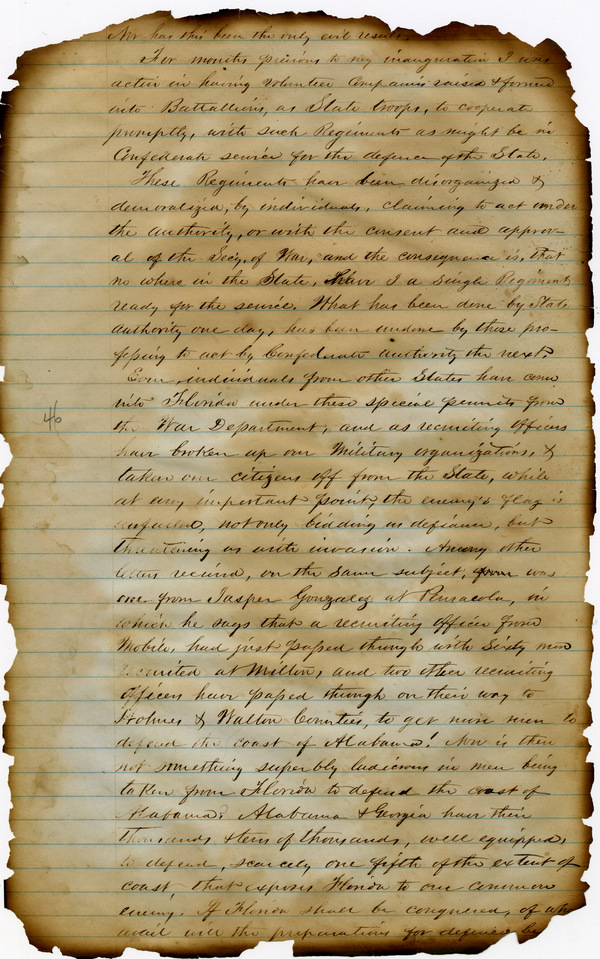 Nor has this been the only evil result.
For months previous to my inauguration I was
active in having volunteer Companies raised & formed
into Battallions, as State troops, to cooperate
promptly, with such Regiments as might be in
Confederate service for the defence of the State.
These Regiments have been disorganized &
demoralized, by individuals, claiming to act under
the authority, or with the consent and approv-
al of the Secy. of War, and the consequence is, that
no where in the State, have I a single Regiment
ready for the service. What has been done by State
authority one day, has been undone by those pro-
fessing to act by Confederate authority the next.
Even individuals from other States have come
into Florida under these special permits from
the War Department, and as recruiting officers
have broken up our Military organizations, &
taken our citizens off from the State, while
at any important point, the enemy's flag is
unfurled, not only bidding us defiance, but
threatening us with invasion. Among other
letters received, on the same subject, was
one from Jasper Gonzalez at Pensacola, in
which he says that a recruiting officer from
Mobile, had just passed through with sixty men
recruited at Milton, and two other recruiting
officers have passed through on their way to
Holmes & Walton Counties, to get more men to
defend the coast of Alabama! Nor is there
not something superbly ludicrous in men being
taken from Florida to defend the coast of
Alabama? Alabama & Georgia have their
thousands & tens of thousands, well equipped,
to defend, scarcely one fifth of the extent of
coast, that exposes Florida to our common
enemy. If Florida shall be conquered, of what
avail will the preparations for defence be
46